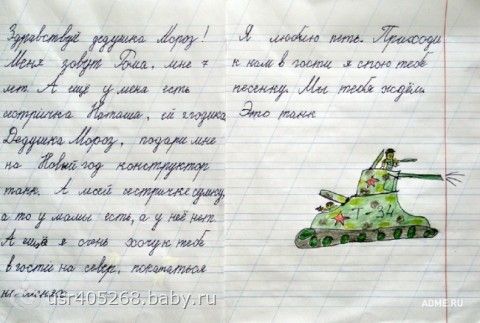 Здравствуй дедушка Мороз!
Меня зовут Рома, мне 7
лет. А ещё у меня есть
сестричка Наташа, ей 2 годика
Дедушка Мороз, подари мне
на Новый год конструктор
танк. А моей сестричке сумку,
а то у мамы есть, а у неё нет.
А ещё я очень хочу к тебе
в гости на север, покататься
на
Я люблю петь. Приходи
к нам в гости я спою тебе
песенку. Мы тебя ждём.
Это танк
Т 34
usr405268.baby.ru
ADME.RU